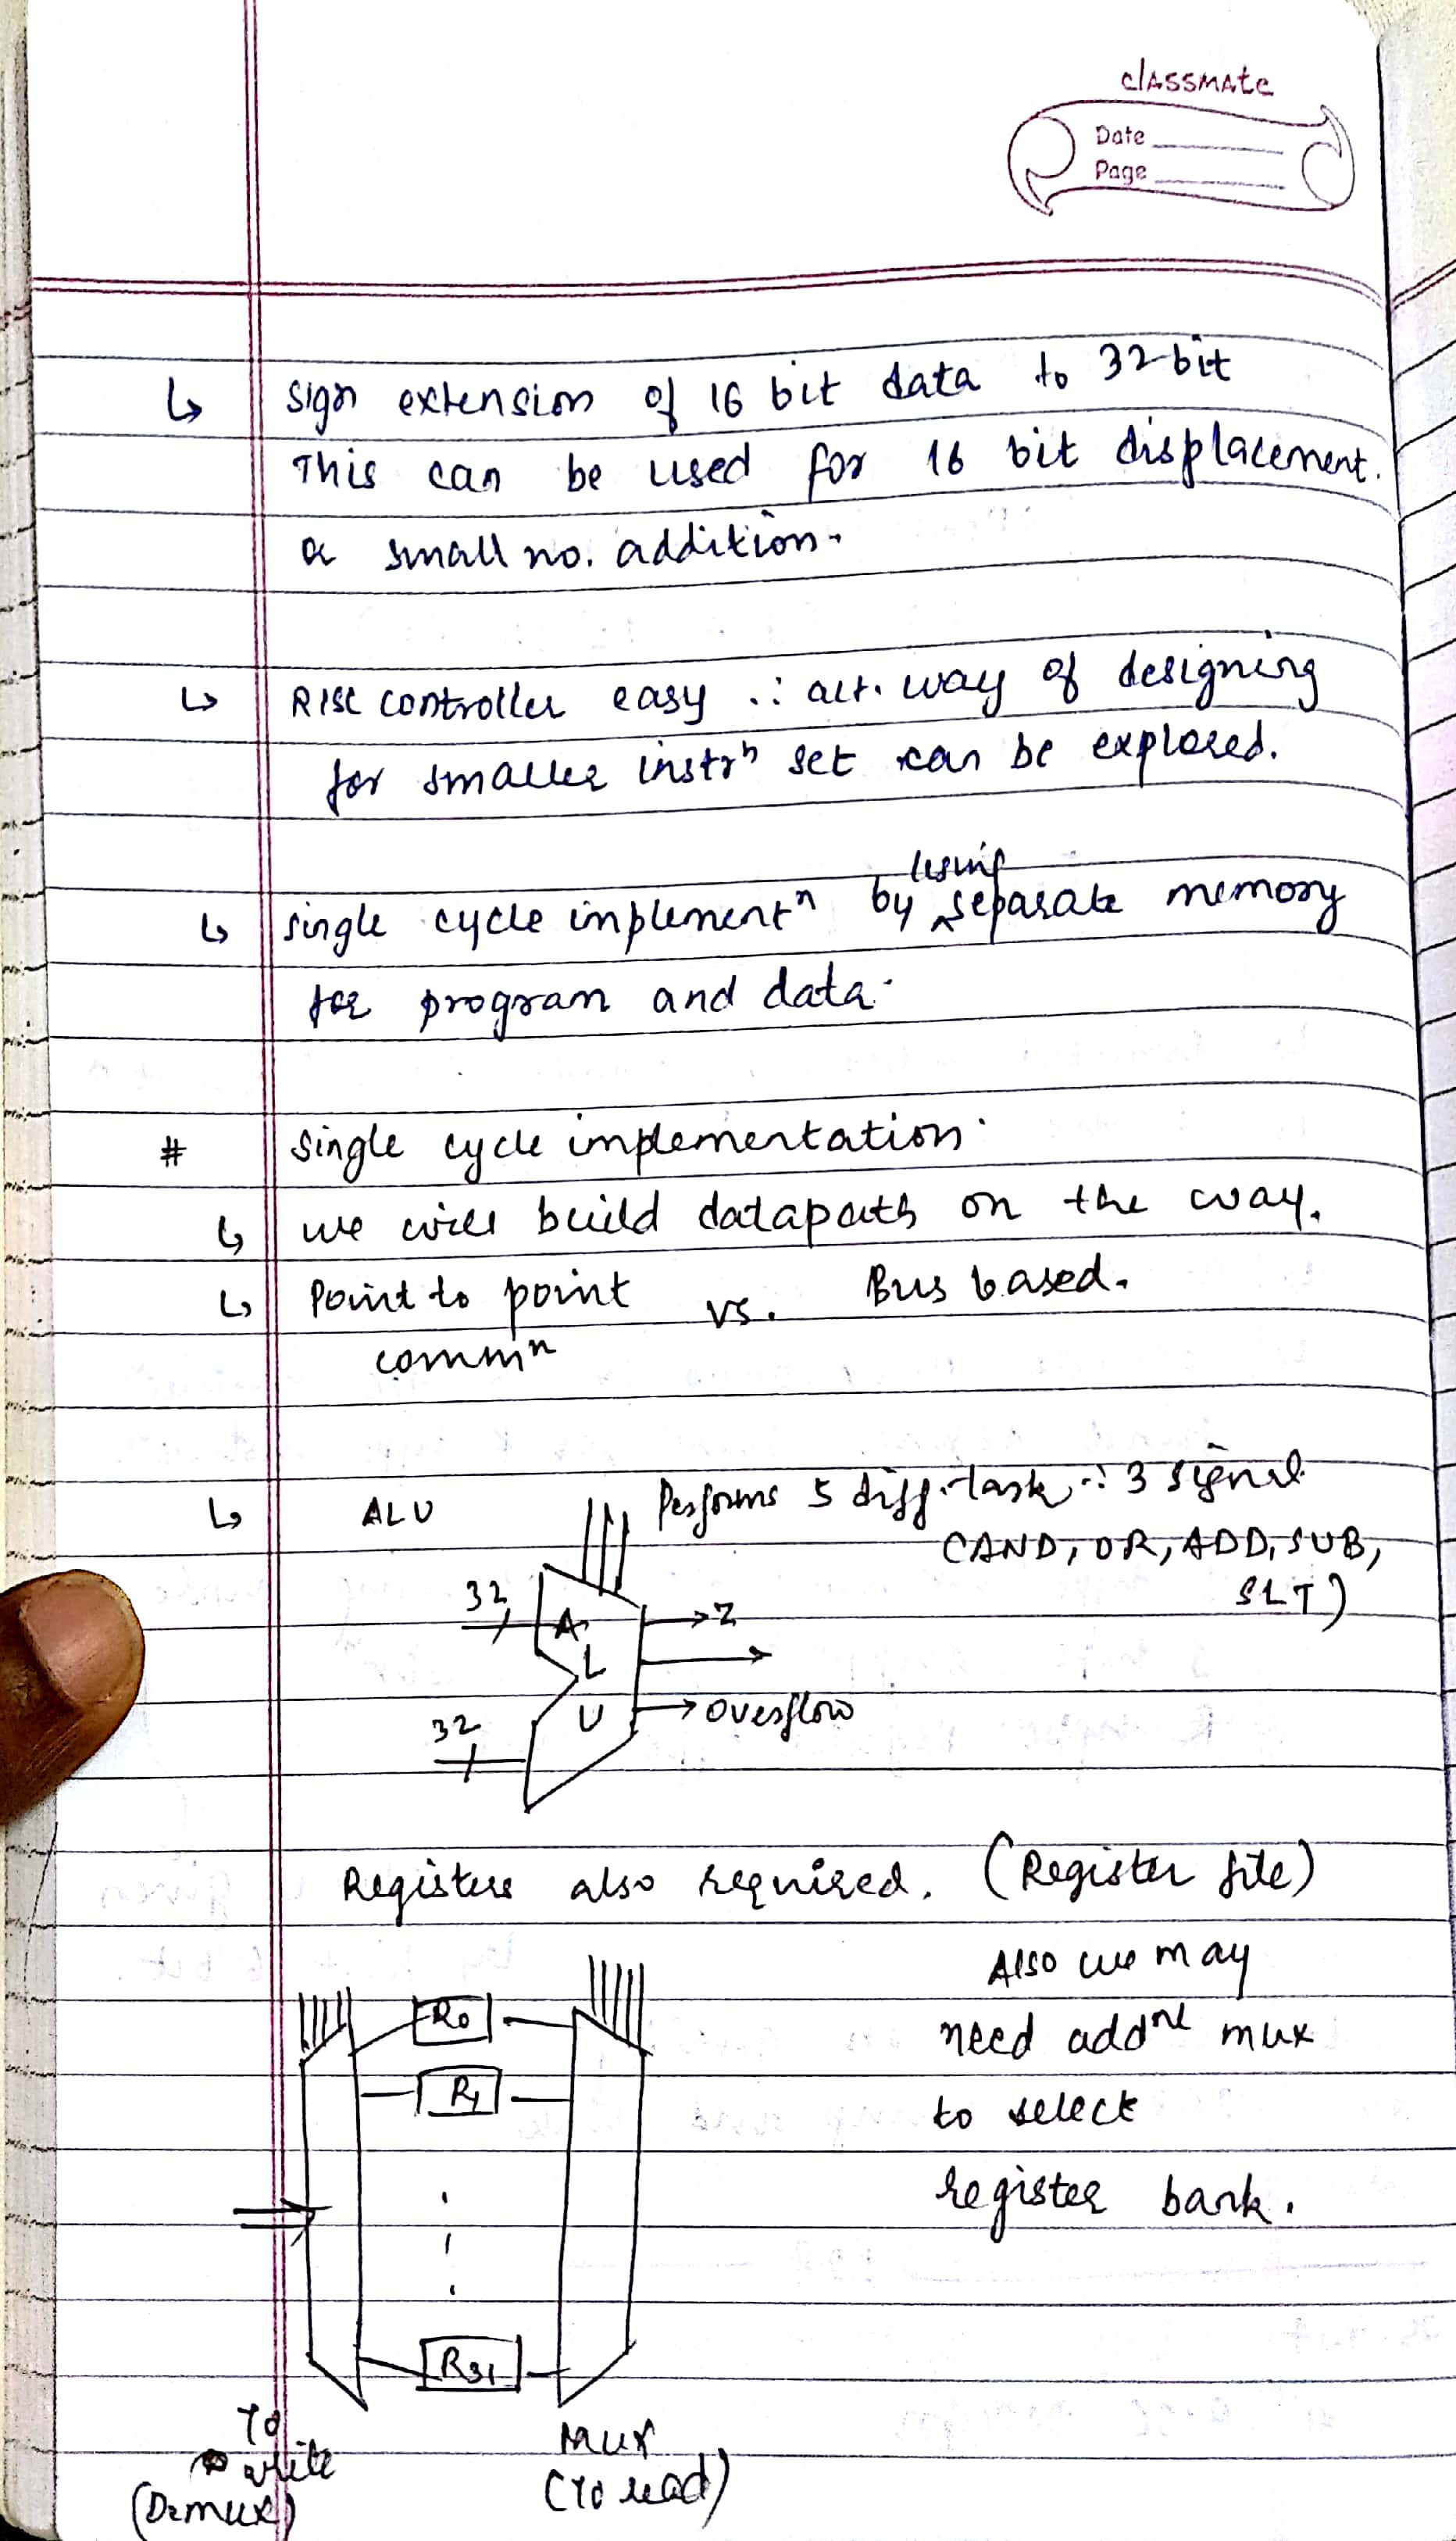 classmate
Date
Page
↳ sign extension of 16 bit data to 32 bit
This can be used for 16 bit displacement.
a small no. addition.
↳ RISC controller easy ∴ alt. way of designing
for smaller instrⁿ set can be explored.
↳ single cycle implementⁿ by using separate memory
for program and data.
# Single cycle implementation.
↳ we will build datapath on the way.
↳ Point to point vs. Bus based.
commⁿ
↳ ALU Performs 5 diff. task ∴ 3 signal
(AND, OR, ADD, SUB,
SLT)
32
ALU
Z
32
overflow
Registers also required. (Register file)
Also we may
need addnl mux
to select
register bank.
R0
R1
R31
To
write
(Demux)
Mux
(To read)